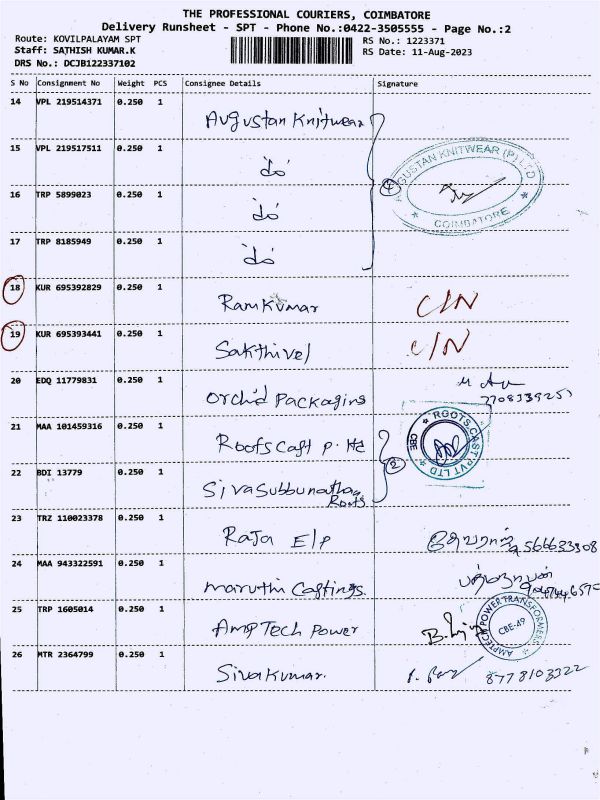 THE PROFESSIONAL COURIERS, COIMBATORE
Delivery Runsheet - SPT - Phone No.:0422-3505555 - Page No.:2
Route: KOVILPALAYAM SPT RS No.: 1223371
Staff: SATHISH KUMAR.K RS Date: 11-Aug-2023
DRS No.: DCJB122337102
S No Consignment No Weight PCS Consignee Details Signature
14 VPL 219514371 0.250 1 Augustan Knitwear
15 VPL 219517511 0.250 1 do
AUGUSTAN KNITWEAR (P) LTD
COIMBATORE
4
16 TRP 5899023 0.250 1 do
17 TRP 8185949 0.250 1 do
18 KUR 695392829 0.250 1 Ramkumar C/N
19 KUR 695393441 0.250 1 Sakthivel C/N
20 EDQ 11779831 0.250 1 Orchid Packaging
21 MAA 101459316 0.250 1 Roots Cast P. Ltd
ROOTS CAST PVT LTD
CBE
2
22 BDI 13779 0.250 1 Sivasubbunathan
Roots
23 TRZ 110023378 0.250 1 Raja E/P
24 MAA 943322591 0.250 1 Maruthi Castings
25 TRP 1605014 0.250 1 Amp Tech Power
AMPTECH POWER TRANSFORMERS
CBE-49
26 MTR 2364799 0.250 1 Sivakumar. 8778103322